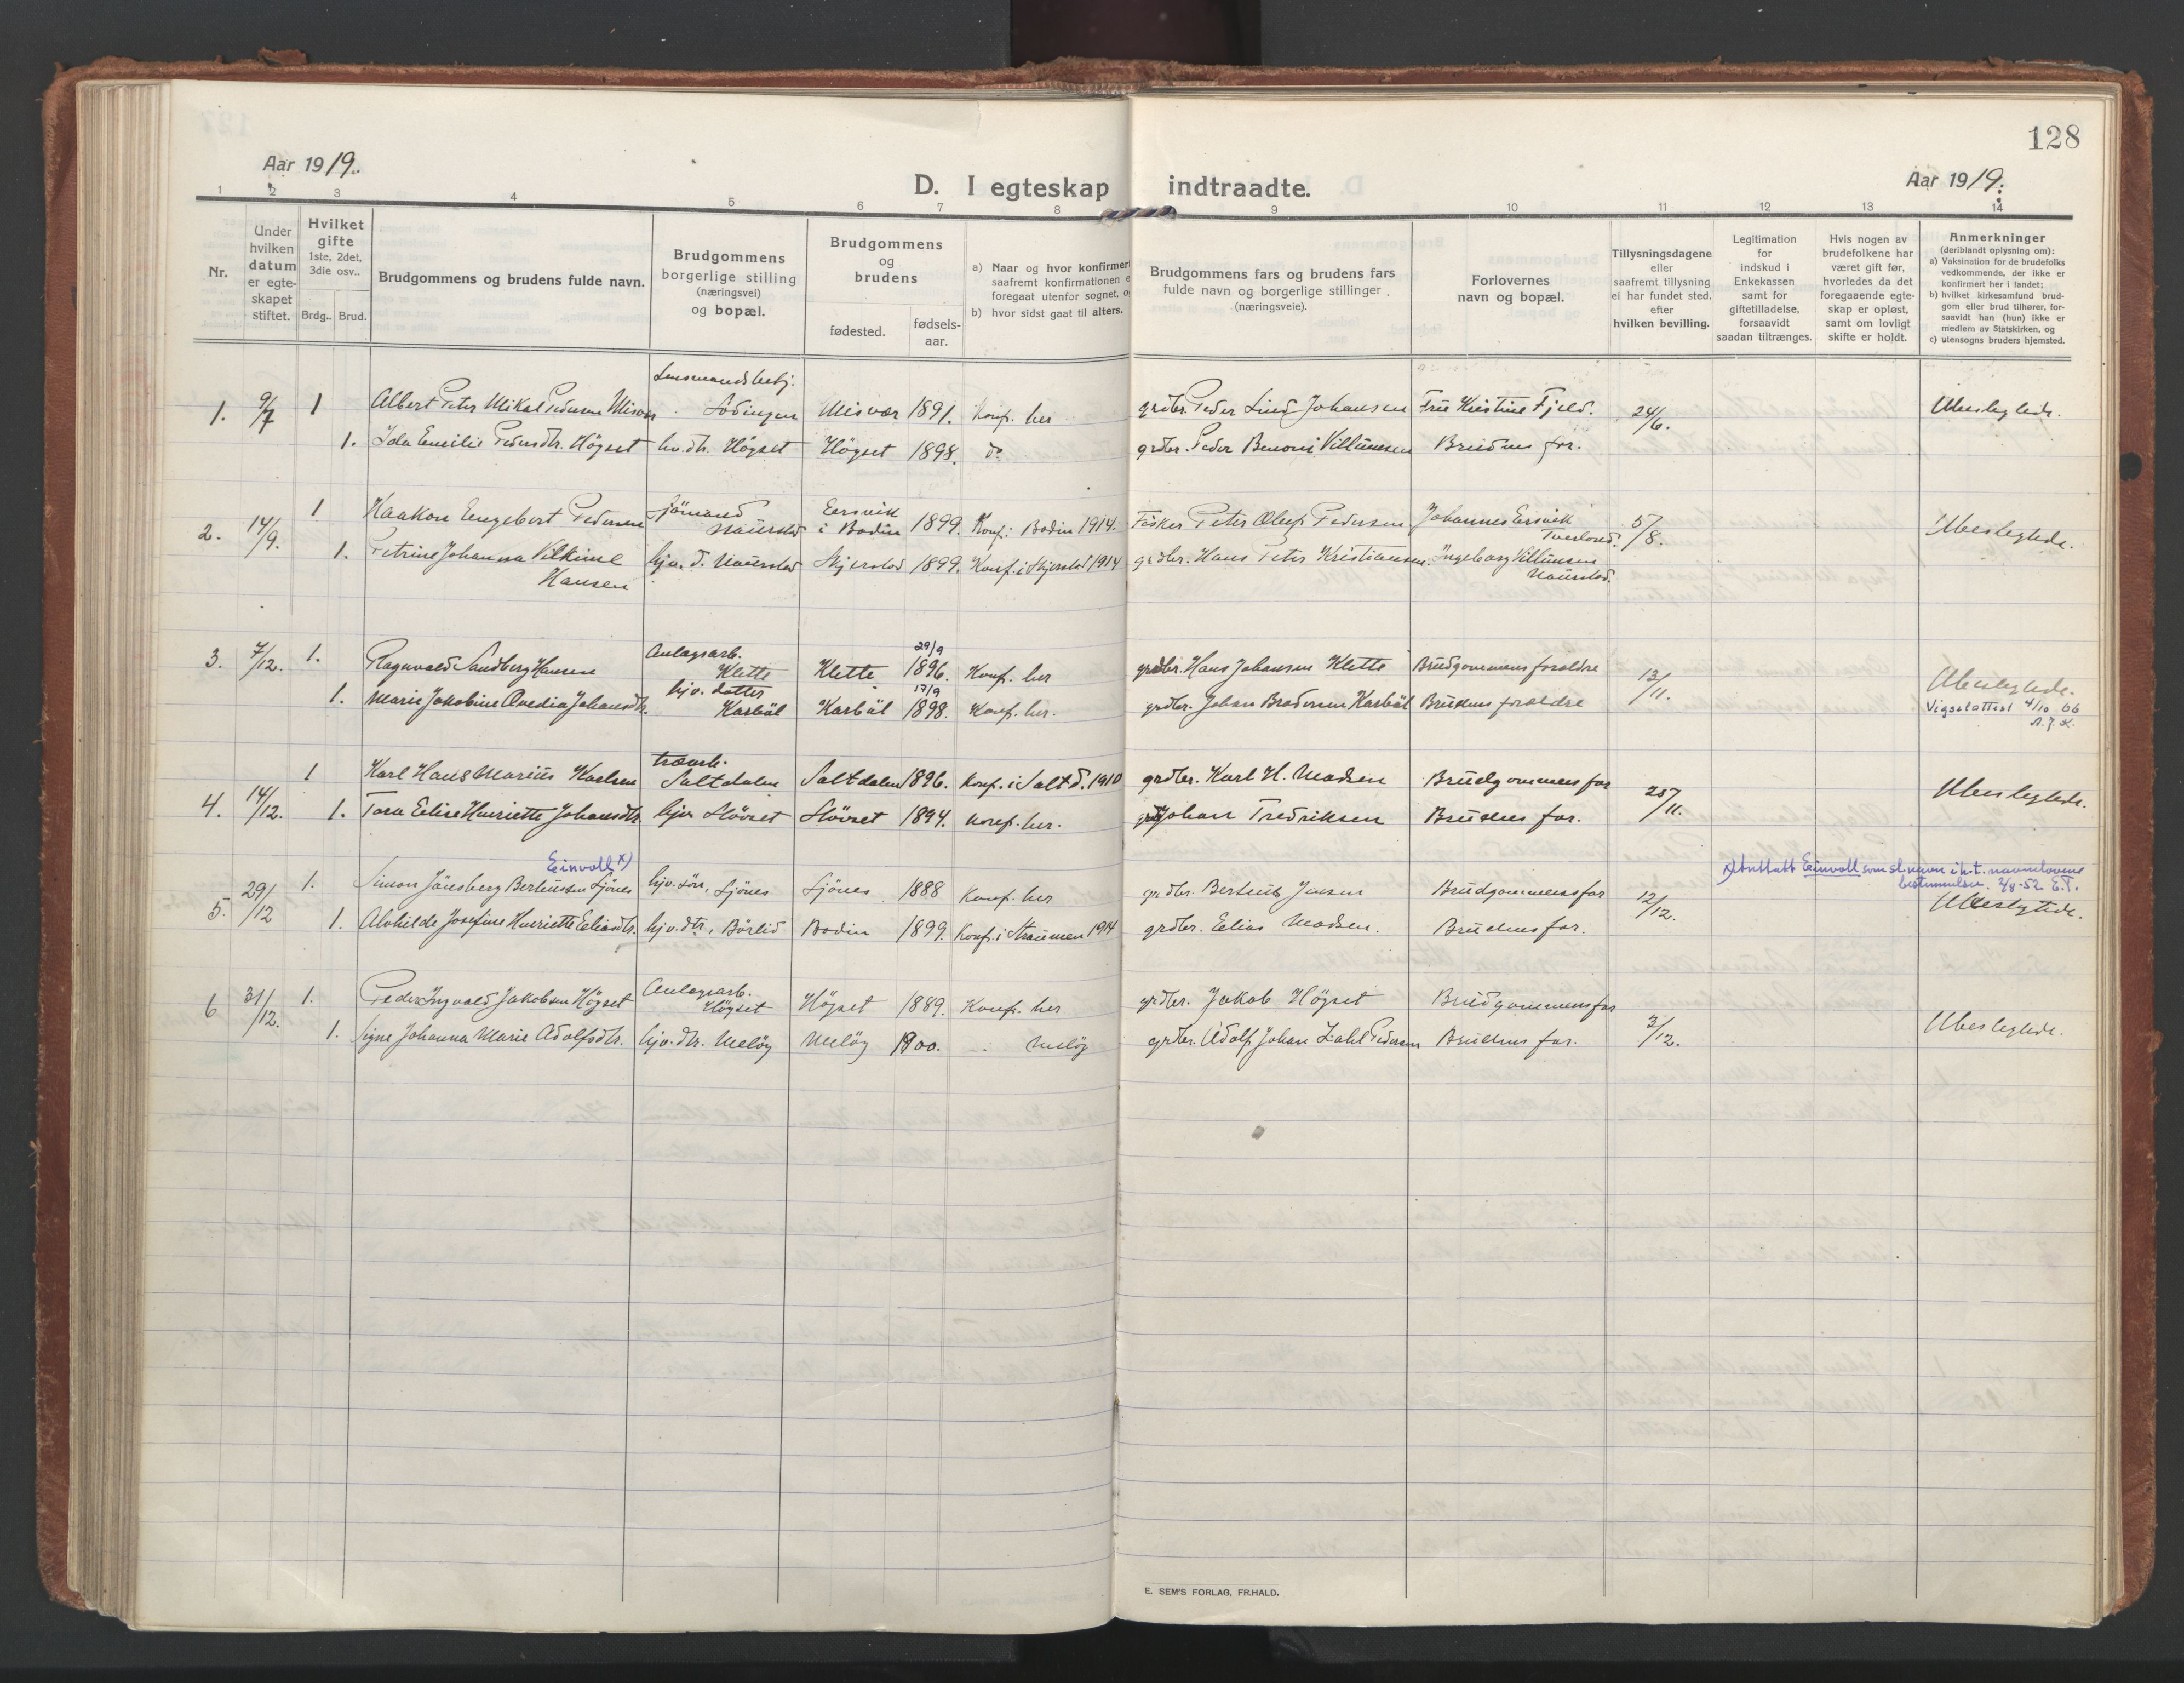 128
Aar 1919.
D. I egteskap indtraadte.
Aar 1919.
1 2 3 4 5 6 7 8 9 10 11 12 13 14
Nr.
Under hvilken datum er egte-skapet stiftet.
Hvilket gifte 1ste, 2det, 3die osv..
Brdg.. Brud.
Brudgommens og brudens fulde navn.
Brudgommens borgerlige stilling (næringsvei) og bopæl.
Brudgommens og brudens
fødested.
fødsels-aar.
a) Naar og hvor konfirmer
saafremt konfirmationen e
foregaat utenfor sognet, o
b) hvor sidst gaat til alters.
Brudgommens fars og brudens fars
fulde navn og borgerlige stillinger.
(næringsveie).
Forlovernes
navn og bopæl.
Tillysningsdagene
eller
saafremt tillysning
ei har fundet sted,
efter
hvilken bevilling.
Legitimation
for
indskud i
Enkekassen
samt for
giftetilladelse,
forsaavidt
saadan tiltrænges.
Hvis nogen av
brudefolkene har
været gift før,
hvorledes da det
foregaaende egte-
skap er opløst,
samt om lovligt
skifte er holdt.
Anmerkninger
(deriblandt oplysning om):
a) Vaksination for de brudefolks
vedkommende, der ikke er
konfirmert her i landet;
b) hvilket kirkesamfund brud-
gom eller brud tilhører, for-
saavidt han (hun) ikke er
medlem av Statskirken, og
c) utensogns bruders hjemsted.
Lensmandsbetj.
1. 9/7 1 Albert Peter Mikal Pedersen Misvær Lödingen Misvær 1891. Konf. her grdbr. Peder Lind Johansen Frue Kristine Fjeld. 24/6. Ubeslegtede.
1. Ida Emilie Pedersdtr. Högset hv. dtr. Högset Högset 1898. do grdbr. Peder Benoni Villumsen Brudens for.
2. 14/9. 1 Haakon Engebert Pedersen Sjömand Naurstad Eersvik i Bodin 1899. Konf. i Bodin 1914. Fisker Peter Oluf Pedersen Johannes Eersvik Tverland. 5/8. Ubeslegtede.
1. Petrine Johanna Vilkine Hansen hjv. d. Naurstad Skjerstad 1899. Konf. i Skjerstad 1914 grdbr. Hans Peter Kristiansen. Ingeborg Villumsen Naurstad.
3. 7/12. 1. Ragnvald Sandberg Hansen Anlagsarb. Klette Klette 29/9 1896. Konf. her grdbr. Hans Johansen Klette Brudgommens forældre 13/11. Ubeslegtede.
1. Marie Jakobine Ovedia Johansdtr. hjv. datter Karbøl Karbøl 17/9 1898. Konf. her. grdbr. Johan Brodersen Karbøl Brudens forældre Vigselattest 4/10 66
1 Karl Hans Marius Karlsen Saltdalen Saltdalen 1896. Konf. i Saltd. 1910 grdbr. Karl H. Madsen Brudgommens for
4. 14/12. 1. Tora Elise Henriette Johansdtr. hjv Støvset Støvset 1894. Konf. her. Johan Fredriksen Brudens for. 25/11. Ubeslegtede.
Einvoll x)
5. 29/12 1. Simon Jönsberg Bertheussen Ljönes hjv. sön, Ljönes Ljönes 1888 Konf. her grdbr. Bertheus Jensen Brudgommens for 12/12. x) Antatt Einvoll som slnavn i h.t. navnelovens bestemmelser. 2/8-52 E.T.
Ubeslegtede.
1. Alvhilde Josefine Henriette Eliasdtr. hjv. dtr, Börlid Bodin 1899. Konf. i Straumen 1914 grdbr. Elias Madsen. Brudens for.
6 31/12. 1. Peder Ingvald Jakobsen Högset Anlagsarb. Högset Högset 1889. Konf. her grdbr. Jakob Högset Brudgommens for
1. Signe Johanna Marie Adolfsdtr. hjv. dtr. Melöy Melöy 1900. Melöy grdbr. Adolf Johan Zahl Pedersen Brudens for. 3/12. Ubeslegtede.
E. SEM'S FORLAG, FR.HALD.